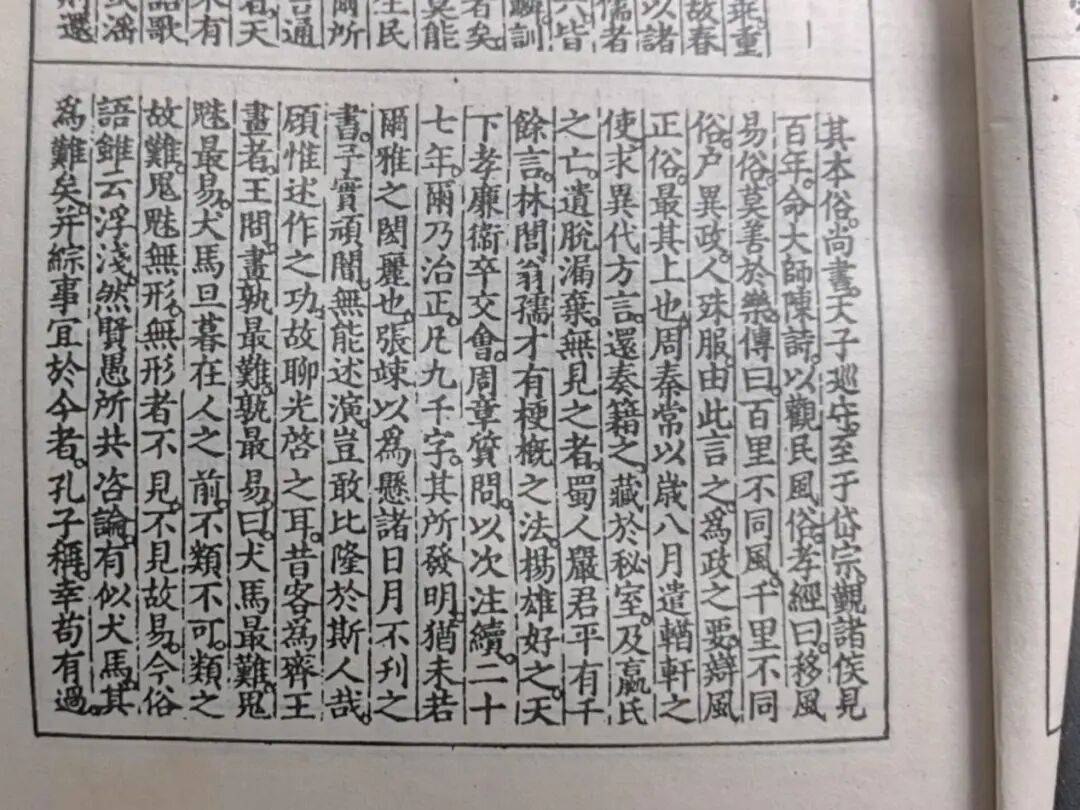 重
故春
以諸
儒者
皆
訓
者矣
莫能
民
爾所
言通
天
未有
語歌
還
其本俗。尚書。天子巡守。至于岱宗。覲諸侯。見
百年。命大師陳詩。以觀民風俗。孝經曰。移風
易俗。莫善於樂。傳曰。百里不同風。千里不同
俗。户異政。人殊服。由此言之。爲政之要。辯風
正俗。最其上也。周秦常以歲八月遣輶軒之
使。求異代方言。還奏籍之。藏於秘室。及嬴氏
之亡。遺脫漏棄。無見之者。蜀人嚴君平有千
餘言。林閭翁孺才有梗概之法。楊雄好之。天
下孝廉衞卒交會。周章質問。以次注續。二十
七年。爾乃治正。凡九千字。其所發明。猶未若
爾雅之閎麗也。張竦以爲懸諸日月不刊之
書。予實頑闇。無能述演。豈敢比隆於斯人哉。
顧惟述作之功。故聊光啓之耳。昔客爲齊王
畫者。王問。畫孰最難。孰最易。曰。犬馬最難。鬼
魅最易。犬馬旦暮在人之前。不類不可。類之
故難。鬼魅無形。無形者不見。不見故易。今俗
語雖云浮淺。然賢愚所共咨論。有似犬馬。其
爲難矣。并綜事宜於今者。孔子稱。幸苟有過。